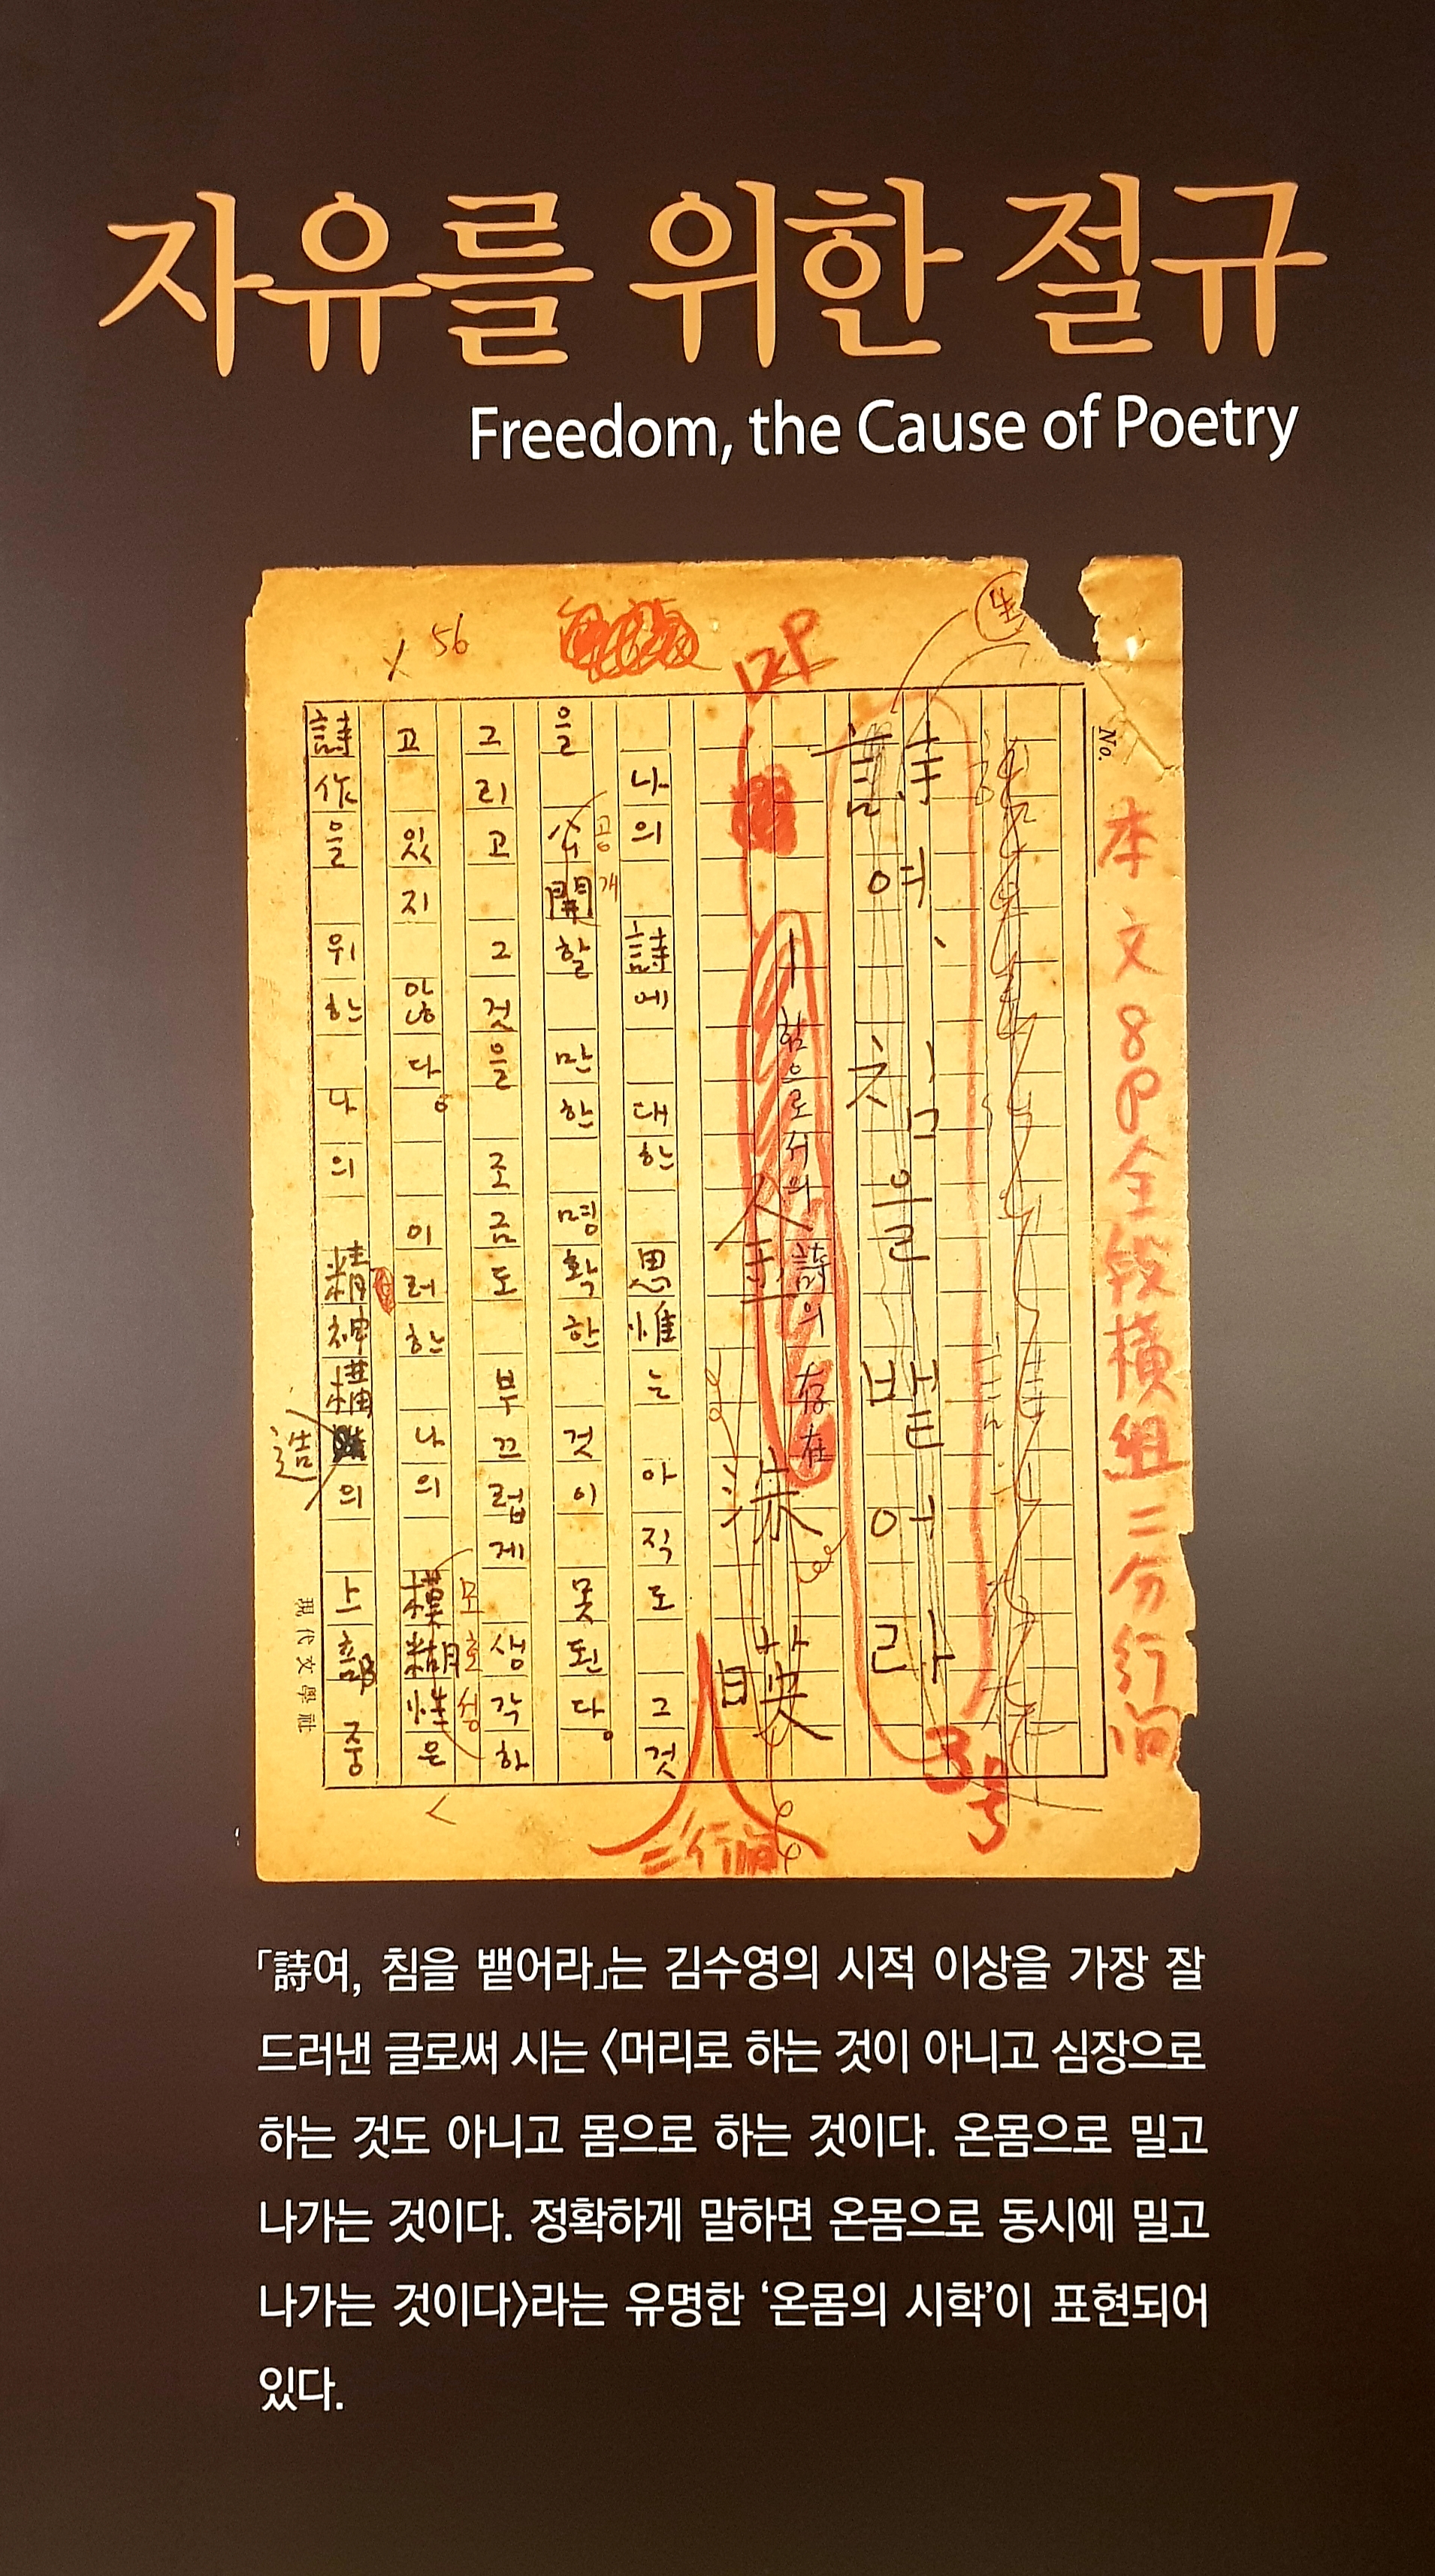 자유를 위한 절규
Freedom, the Cause of Poetry
56
12P
No.
本文8P全段橫組二分行间
詩여、침을 뱉어라
3号
—힘으로서의 詩의 存在
金洙暎
二行间
나의 詩에 대한 思惟는 아직도 그것
을 公開할 만한 명확한 것이 못된다。
공개
그리고 그것을 조금도 부끄럽게 생각하
고 있지 않다。 이러한 나의 模糊性은
모호성
詩作을 위한 나의 精神構의 上部 중
造
現代文學社
「詩여, 침을 뱉어라」는 김수영의 시적 이상을 가장 잘
드러낸 글로써 시는 〈머리로 하는 것이 아니고 심장으로
하는 것도 아니고 몸으로 하는 것이다. 온몸으로 밀고
나가는 것이다. 정확하게 말하면 온몸으로 동시에 밀고
나가는 것이다〉라는 유명한 ‘온몸의 시학’이 표현되어
있다.